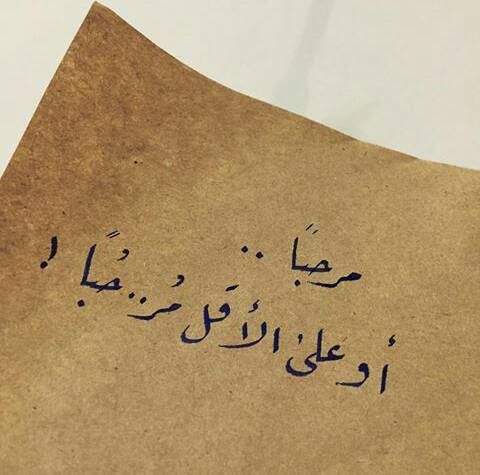 مرحبًا ..
أو على الأقل مُر..حُبًا !